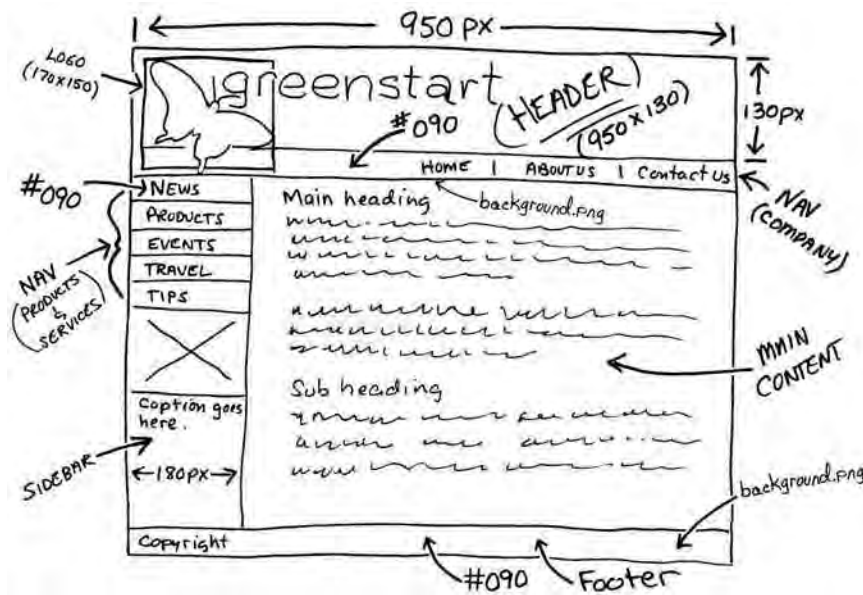 950 PX
LOGO
(170x150)
greenstart
(HEADER)
(950 x 130)
130px
#090
HOME | ABOUT US | Contact Us
NAV
(COMPANY)
#090
NEWS
PRODUCTS
EVENTS
TRAVEL
TIPS
NAV
(PRODUCTS
&
SERVICES)
Main heading
background.png
MAIN
CONTENT
Sub heading
Caption goes
here.
SIDEBAR
180px
background.png
Copyright
#090
Footer